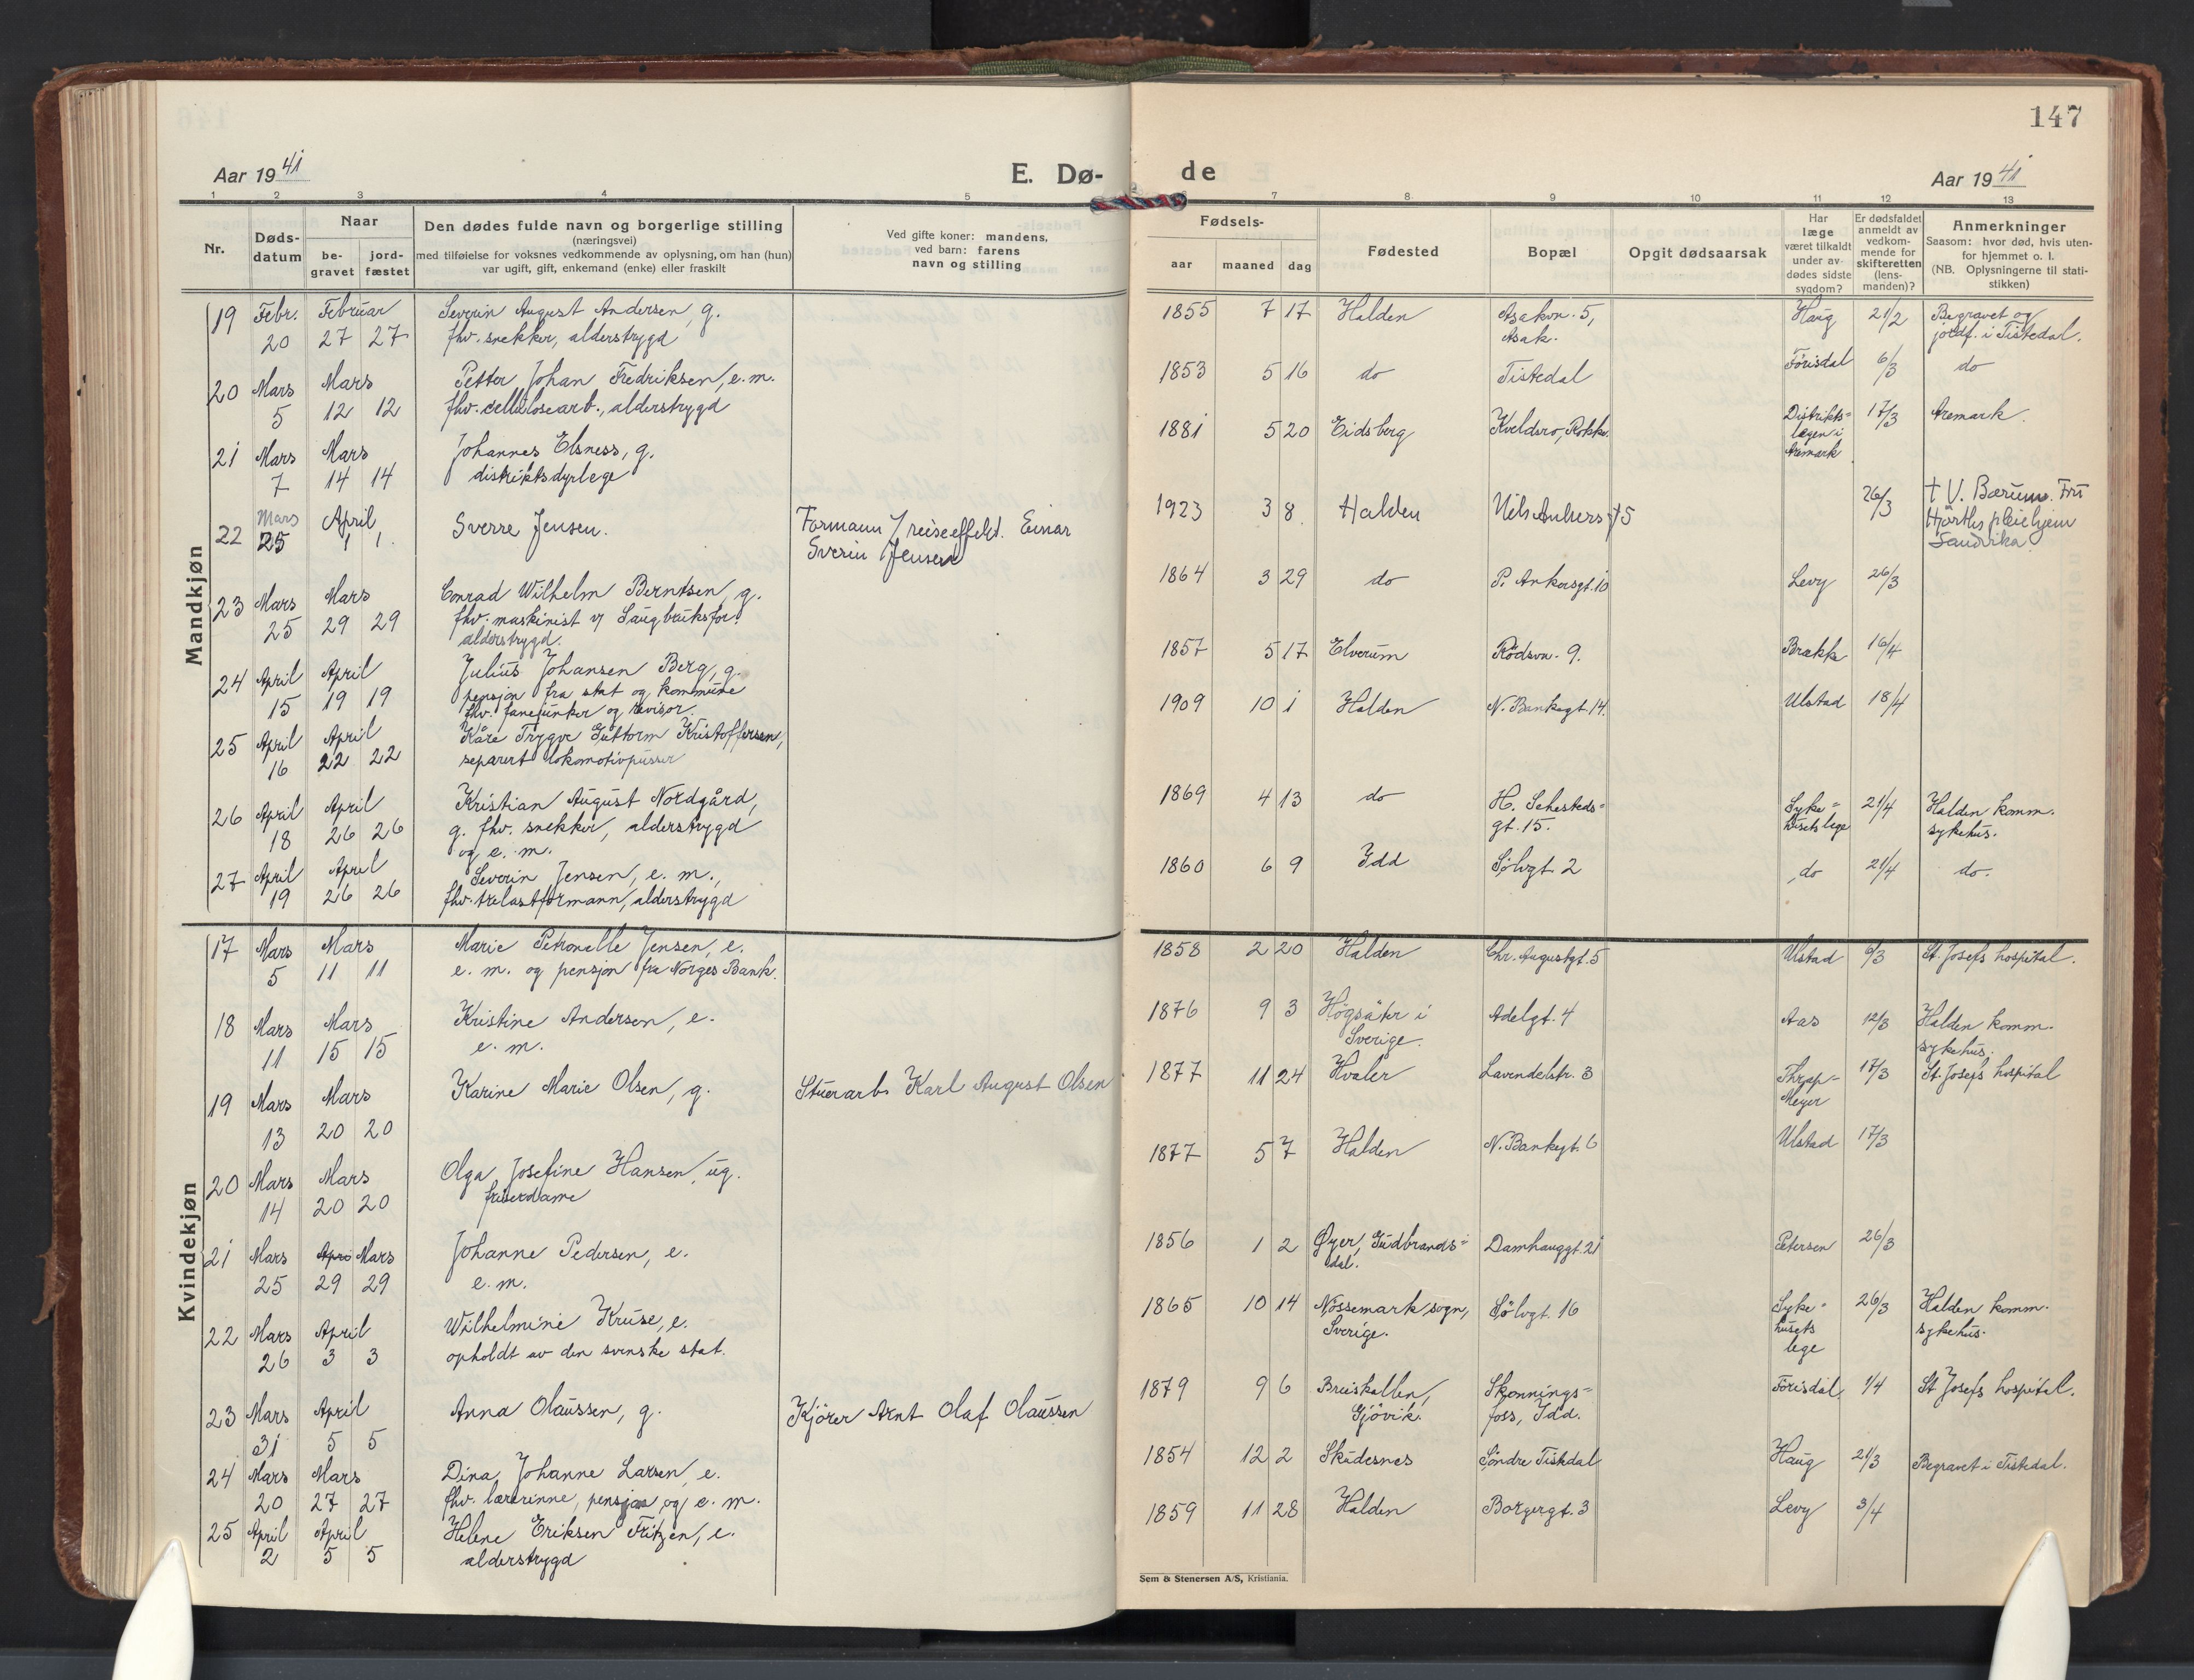 147
Aar 1941
E. Dø-
de
Aar 1941
1 2 3 4 5 6 7 8 9 10 11 12 13
Nr.
Døds-
datum
Naar
be-
gravet
jord-
fæstet
Den dødes fulde navn og borgerlige stilling
(næringsvei)
med tilføielse for voksnes vedkommende av oplysning, om han (hun)
var ugift, gift, enkemand (enke) eller fraskilt
Ved gifte koner: mandens,
ved barn: farens
navn og stilling
Fødsels-
aar maaned dag
Fødested
Bopæl
Opgit dødsaarsak
Har
læge
været tilkaldt
under av-
dødes sidste
sygdom?
Er dødsfaldet
anmeldt av
vedkom-
mende for
skifteretten
(lens-
manden)?
Anmerkninger
Saasom: hvor død, hvis uten-
for hjemmet o. l.
(NB. Oplysningerne til stati-
stikken)
Mandkjøn
19 Febr. Februar Severin August Andersen, g. 1855 7 17 Halden Asakvn. 5, Haug 21/2 Begravet og
20 27 27 fhv. snekker, alderstrygd Asak. jordf. i Tistedal.
20 Mars Mars Petter Johan Fredriksen, e. m. 1853 5 16 do Tistedal Förisdal 6/3 do
5 12 12 fhv. cellulosearb., alderstrygd
21 Mars Mars Johannes Elsness, g. 1881 5 20 Eidsberg Kveldsro, Rokke. Distrikts= 17/3 Aremark.
7 14 14 distriktsdyrlege legen i
Aremark
22 Mars April Sverre Jensen. Formann v/ reiseeffekt. Einar 1923 3 8 Halden Niels Ankers gt 5 26/3 † V. Bærum. Fru
25 1 1. Sverin Jensen Hjorths pleiehjem
Sandvika.
23 Mars Mars Conrad Wilhelm Berntsen, g. 1864 3 29 do P. Ankersgt. 10 Levy 26/3
25 29 29 fhv. maskinist v/ Saugbruksfor.
alderstrygd.
24 April April Julius Johansen Berg, g. 1857 5 17 Elverum Rödsvn. 9. Brækk 16/4
15 19 19 pensjon fra stat og kommune
fhv. fanejunker og revisor.
25 April April Kåre Trygve Guttorm Kristoffersen, 1909 10 1 Halden N. Bankegt. 14. Ulstad 18/4
16 22 22 separert lokomotivpusser
26 April April Kristian August Nordgård, 1869 4 13 do H. Sehesteds= Syke= 21/4 Halden komm.
18 26 26 g. fhv. snekker, alderstrygd gt. 15. husets lege sykehus.
og e. m.
27 April April Severin Jensen, e. m., 1860 6 9 Idd Sølvgt. 2 do 21/4 do.
19 26 26 fhv. trelastformann, alderstrygd
Kvindekjøn
17 Mars Mars Marie Petronelle Jensen, e. 1858 2 20 Halden Chr. Augustgt. 5 Ulstad 6/3 St. Josefs hospital.
5 11 11 e. m. og pensjon fra Norges Bank.
18 Mars Mars Kristine Andersen, e. 1876 9 3 Högsäter i Adelgt. 4 Aas 12/3 Halden komm.
11 15 15 e. m. Sverige. sykehus.
19 Mars Mars Karine Marie Olsen, g. Stuerarb. Karl August Olsen 1877 11 24 Hvaler Lavendelstr. 3 Thrap- 17/3 St. Josefs hospital
13 20 20 Meyer
20 Mars Mars Olga Josefine Hansen, ug. 1877 5 7 Halden N. Bankegt. 6 Ulstad 17/3
14 20 20 friserdame
21 Mars Apri Mars Johanne Pedersen, e. 1856 1 2 Øyer, Gudbrands= Damhauggt. 21 Petersen 26/3
25 29 29 e. m. dal.
22 Mars April Wilhelmine Kruse, e. 1865 10 14 Nössemark sogn, Sölvgt. 16 Syke= 26/3 Halden komm.
26 3 3 opholdt av den svenske stat. Sverige. husets sykehus.
lege
23 Mars April Anna Olaussen, g. Kjörer Arnt Olaf Olaussen 1879 9 6 Bruiskallen, Skonnings= Förisdal, 1/4 St Josefs hospital.
31 5 5 Gjövik. foss, Idd.
24 Mars Mars Dina Johanne Larsen, e. 1854 12 2 Skudesnes Söndre Tistedal Haug 21/3 Begravet i Tistedal.
20 27 27 fhv. lærerinne, pensjon og e. m.
25 April April Helene Eriksen Fritzen, e. 1859 11 28 Halden Borgergt. 3 Levy 3/4
2 5 5 alderstrygd
Sem & Stenersen A/S, Kristiania.